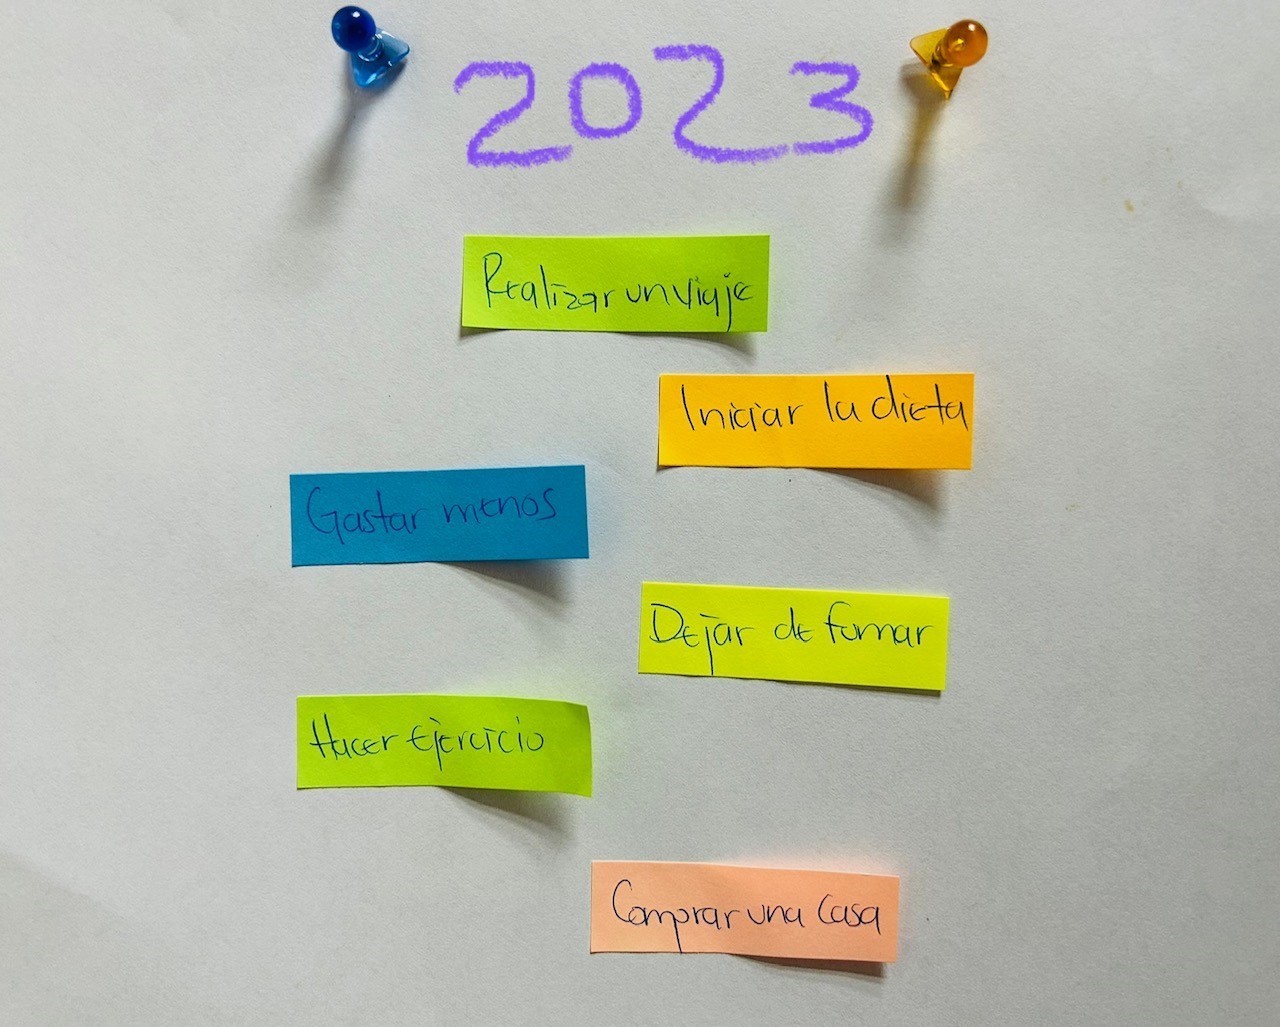 2023
Realizar un viaje
Iniciar la dieta
Gastar menos
Dejar de fumar
Hacer Ejercicio
Comprar una Casa